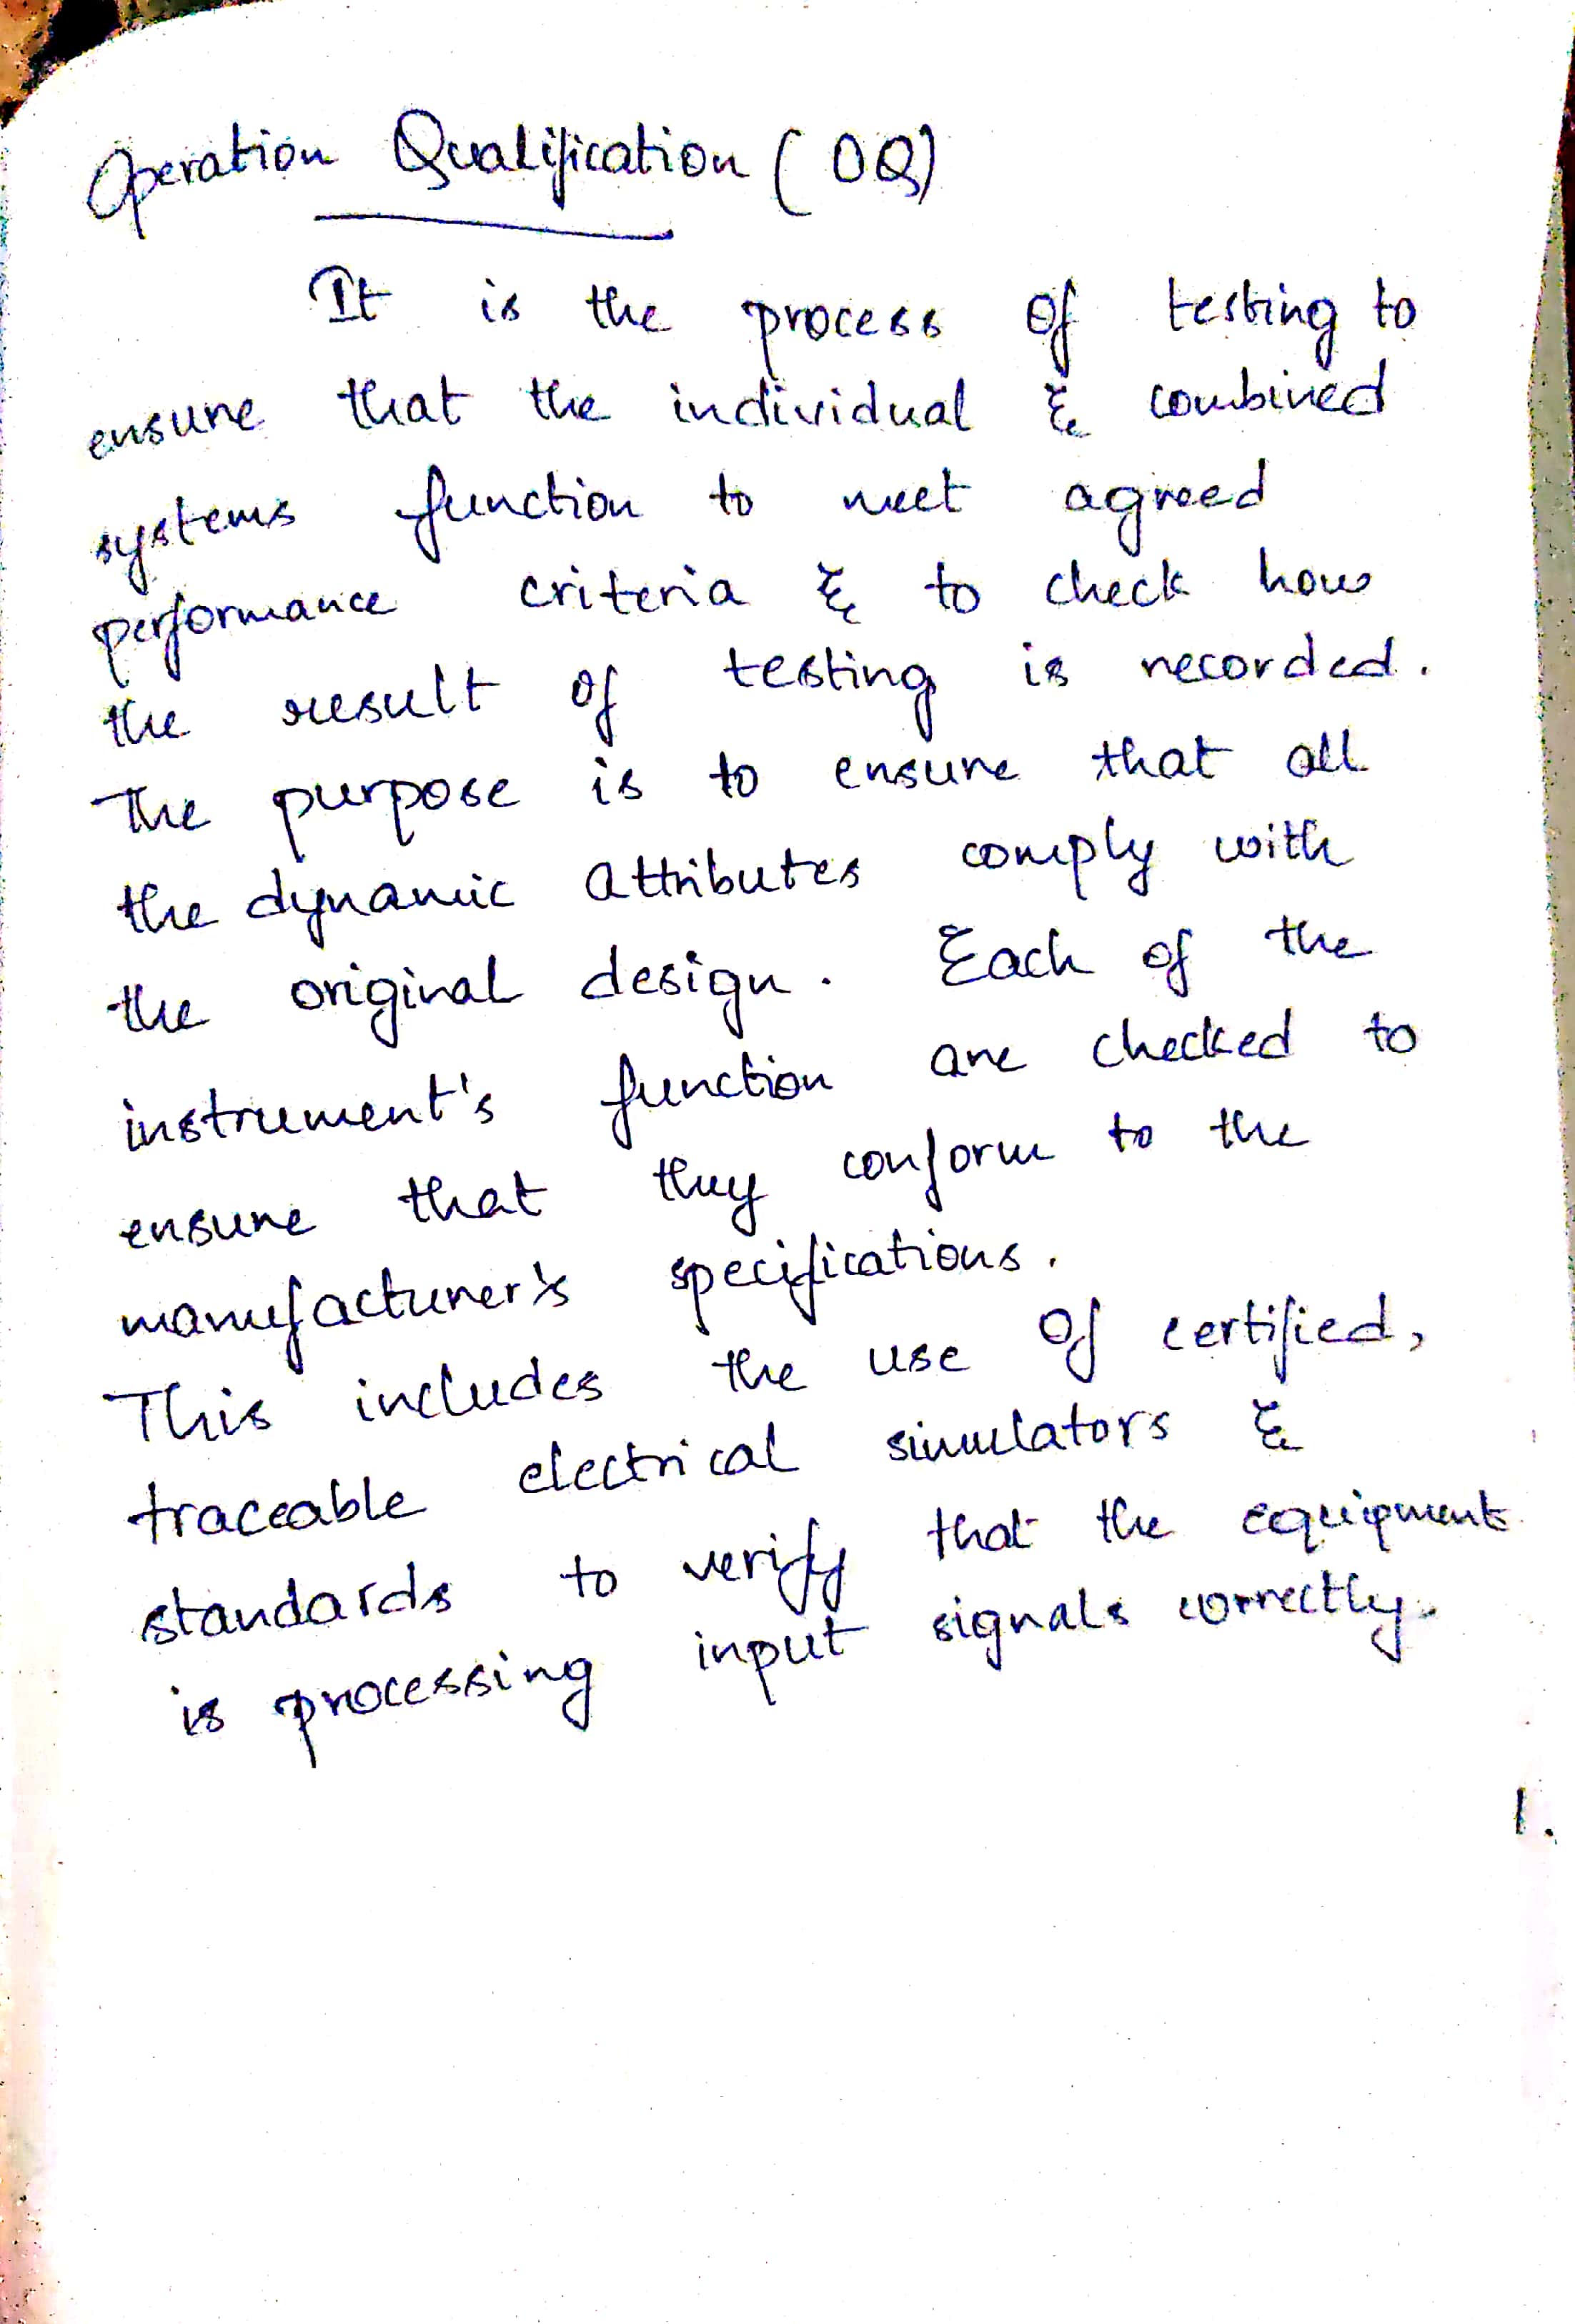 Operation Qualification (OQ)
It is the process of testing to
ensure that the individual & combined
systems function to meet agreed
performance criteria & to check how
the result of testing is recorded.
The purpose is to ensure that all
the dynamic attributes comply with
the original design. Each of the
instrument's function are checked to
ensure that they conform to the
manufacturer's specifications.
This includes the use of certified,
traceable electrical simulators &
standards to verify that the equipment
is processing input signals correctly.
1.